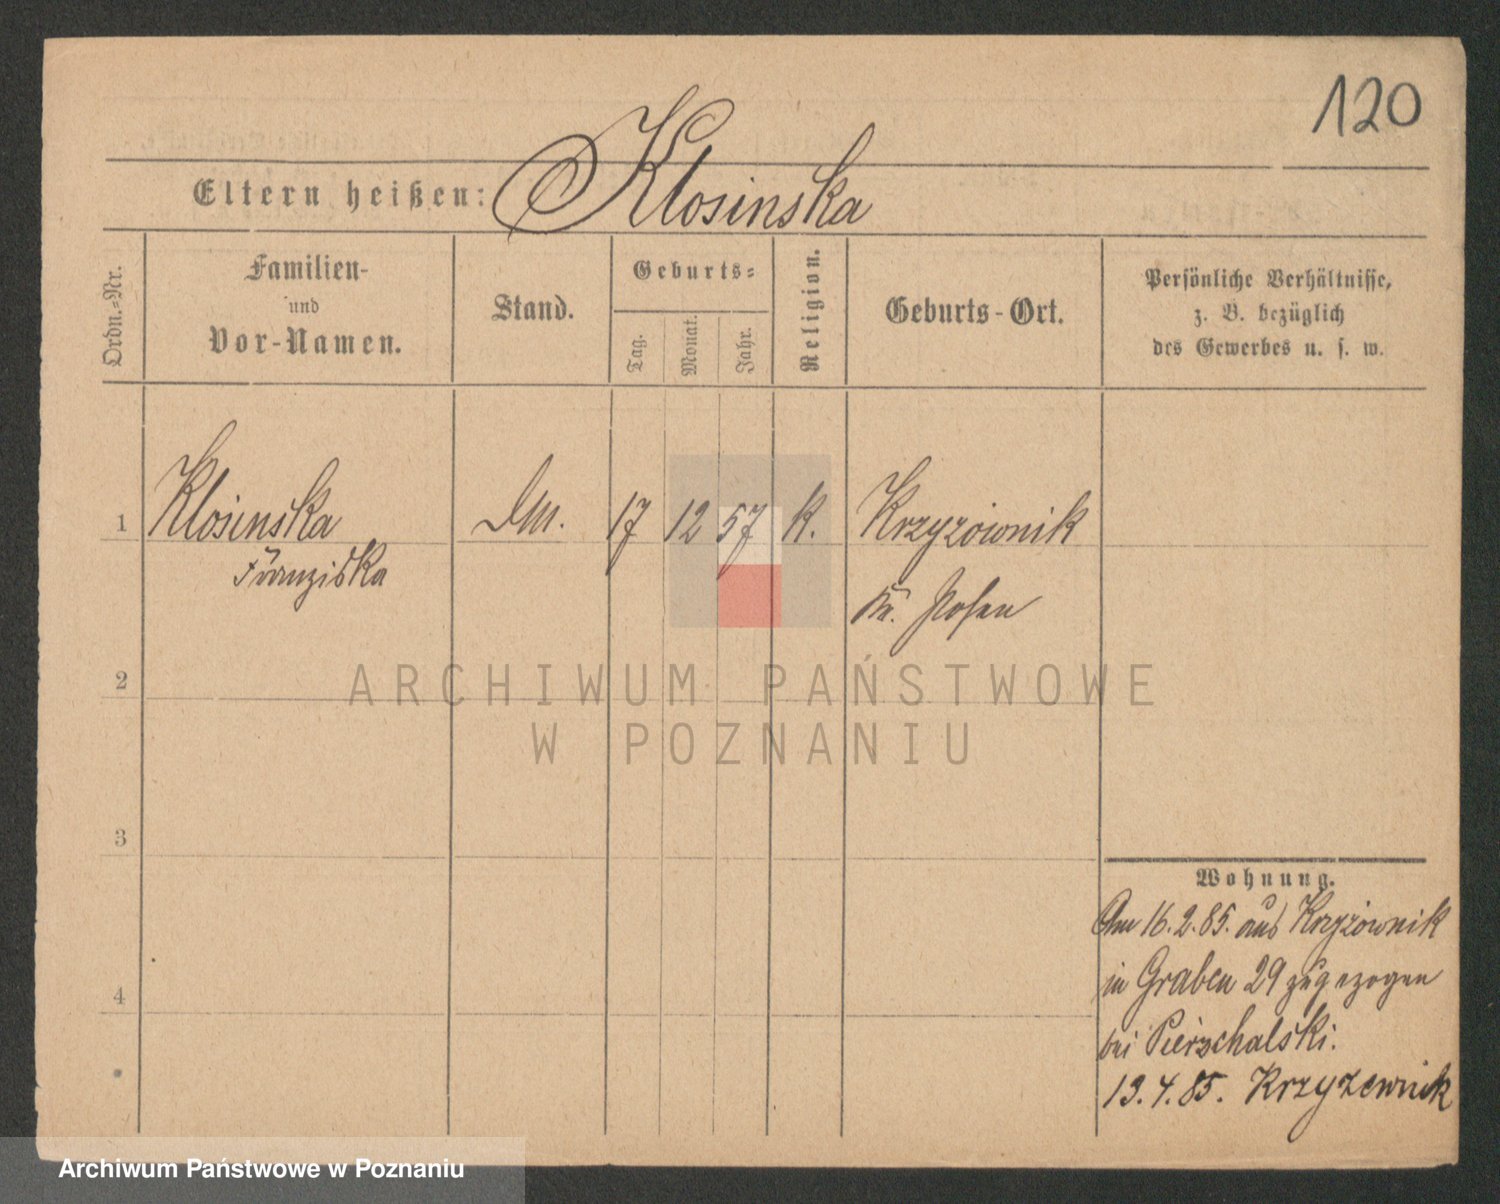 120
Eltern heißen: Klosinska
Ordn.-Nr.
Familien-
und
Vor-Namen.
Stand.
Geburts-
Tag.
Monat.
Jahr.
Religion.
Geburts-Ort.
Persönliche Verhältnisse,
z. B. bezüglich
des Gewerbes u. s. w.
1 Klosinska 17 12 57 k. Krzyzownik
Franziska
Kr. Posen
2
3
4
Wohnung.
Am 16.2.85. aus Krzyżownik
in Graben 29 zugezogen
bei Pierschalski.
13.4.85. Krzyzewnik
ARCHIWUM PAŃSTWOWE
W POZNANIU
Archiwum Państwowe w Poznaniu